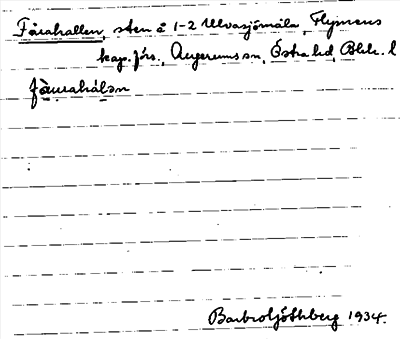 Fårahallen, sten å 1-2 Ulvasjömåla, Flymens
kap.förs., Augerums sn, Östra hd, Blek. l
fårahálən
Barbro Göthberg 1934.